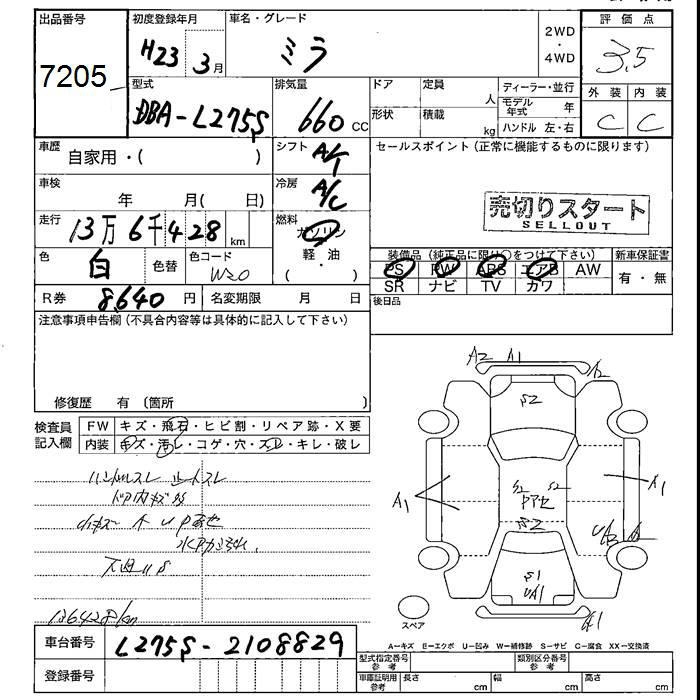 出品番号 初度登録年月 車名・グレード 評価点
7205 H23年 3月 ミラ 2WD・4WD 3.5
型式 排気量 ドア 定員 人 ディーラー・並行 外装 内装
DBA-L275S 660cc 形状 積載 kg モデル年式 年 C C
ハンドル 左・右
車歴 自家用・( ) シフト A/T セールスポイント(正常に機能するものに限ります)
車検 年 月( 日) 冷房 A/C
売切りスタート
SELLOUT
走行 13万6千428km 燃料 ガソリン
軽・油
( )
色 白 色替 色コード W20 装備品(純正品に限り○をつけて下さい) 新車保証書
PS PW ABS エアB AW 有・無
SR ナビ TV カワ
R券 8,640円 名変期限 月 日 後日品
注意事項申告欄(不具合内容等は具体的に記入して下さい)
修復歴 有 〔箇所 〕
検査員記入欄 FW キズ・飛石・ヒビ割・リペア跡・X要
内装 キズ・汚レ・コゲ・穴・スレ・キレ・破レ
ハンドルスレ シートスレ
136428km
A2 A1 A2
S2
A1 S2 S2 A1
PアセS2
UA2
S1
UA1
A1
スペア
A-キズ E-エクボ U-凹み W-補修跡 S-サビ C-腐食 XX-交換済
車台番号 L275S-2108829
登録番号
型式指定番号参考 類別区分番号参考
車庫証明用参考 長さ cm 幅 cm 高さ cm